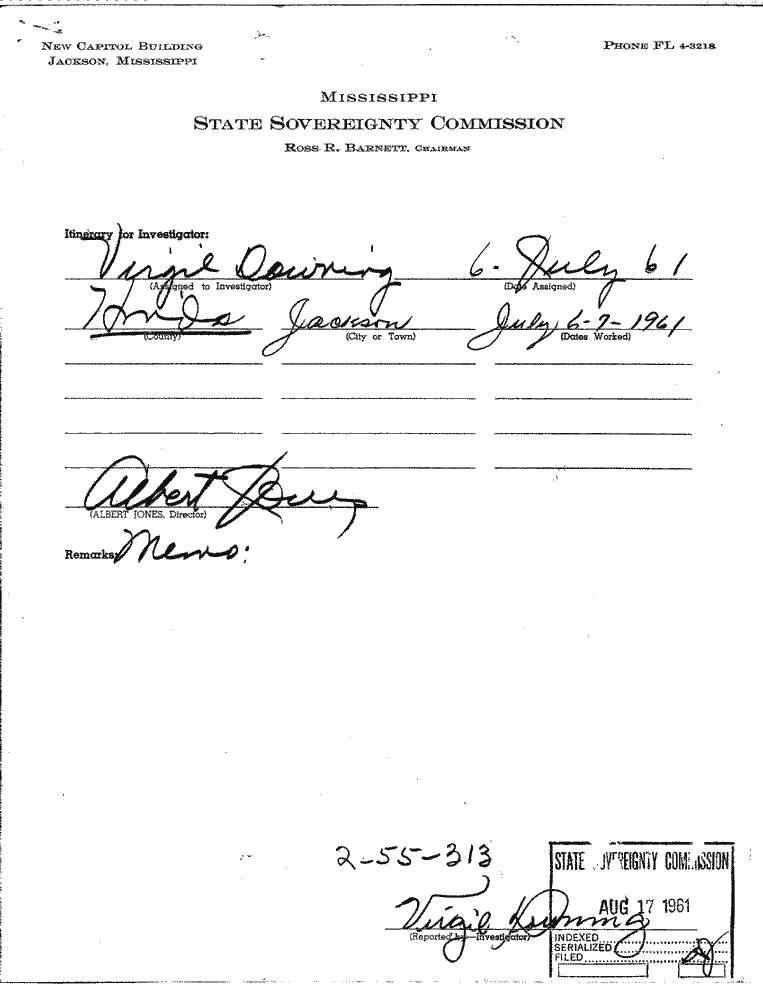 NEW CAPITOL BUILDING
JACKSON, MISSISSIPPI
PHONE FL 4-3218
MISSISSIPPI
STATE SOVEREIGNTY COMMISSION
ROSS R. BARNETT, CHAIRMAN
Itinerary for Investigator:
Virgil Downing 6- July 61
(Assigned to Investigator) (Date Assigned)
Hinds Jackson July, 6-7-1961
(County) (City or Town) (Dates Worked)
Albert Jones
(ALBERT JONES, Director)
Remarks: Memo:
2-55-313
STATE SOVEREIGNTY COMMISSION
AUG 17 1961
Virgil Downing
(Reported by Investigator)
INDEXED
SERIALIZED
FILED